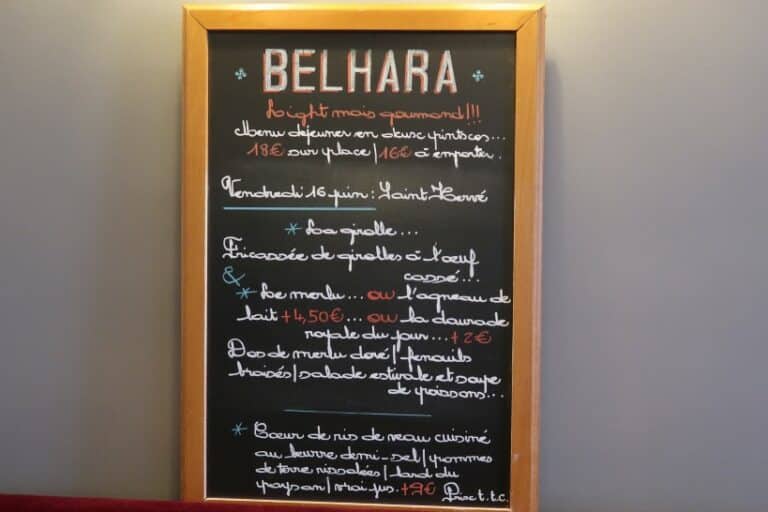 BELHARA
Light mais gourmand!!!
Menu déjeuner en deux pintxos...
18€ sur place | 16€ à emporter.
Vendredi 16 juin : Saint Hervé
* La girolle...
Fricassée de girolles à l'œuf
cassé...
&
* Le merlu... ou l'agneau de
lait +4,50€... ou la daurade
royale du jour... +2€
Dos de merlu doré | fenouils
braisés | salade estivale et soupe
de poissons...
* Cœur de ris de veau cuisiné
au beurre demi-sel | pommes
de terre rissolées | lard du
paysan | vrai jus. +9€ Prix t.t.c.